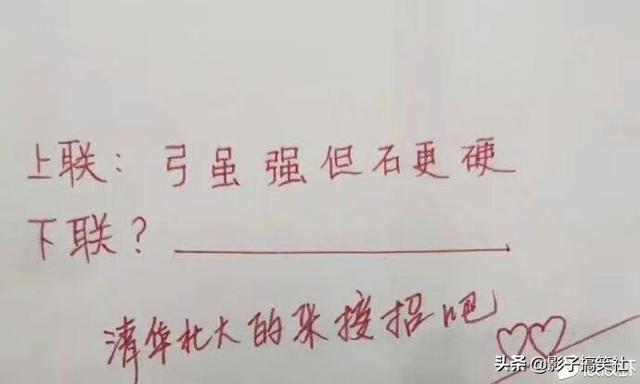 上联：弓虽强但石更硬
下联？
清华北大的来接招吧
头条 @影子搞笑社